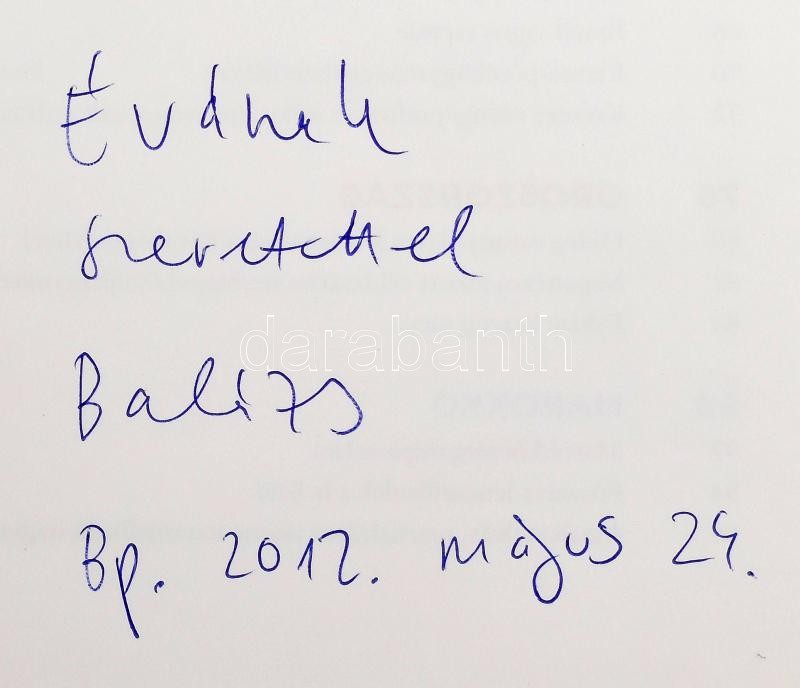 Évának
szeretettel
darabanth
Balázs
Bp. 2012. május 24.